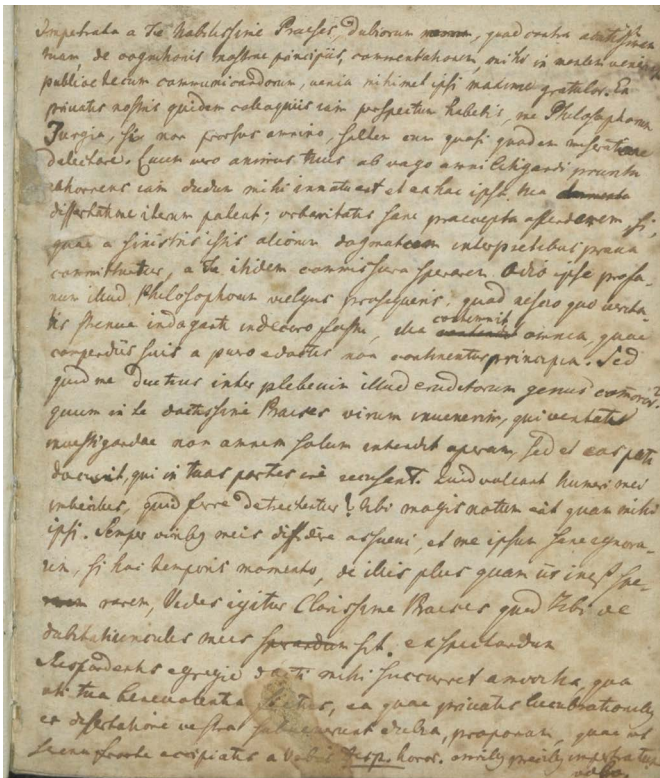 Impetrata a Te Nobilissime Praeses, dubiorum quae contra doctissimam
tuam, de cognitionis nostrae principiis, commentationem, mihi in mentem veniunt
publice tecum communicandorum, venia mihimet ipsi maxime gratulor. Ex
privatis nostris quidem colloquiis iam perspectum habetis, me Philosophorum
Jurgia, si non prorsus omnino, saltem cum quasi quadam miseratione
delectare. Cuum vero animus tuus ab vago omni litigandi pruritu
abhorrens iam dudum mihi innotuit et ex hac ipsa tua
dissertatione iterum pateat; urbanitatis sane praecepta offenderem si,
quae a sinistris istis aliorum dogmatum interpretibus prava
committuntur, a Te itidem commissura sperarem. Odio ipse profa-
num illud Philosophorum vulgus prosequeris, quod nescio quo verita-
tis strenue indaganti indecoro fastu, ea contemnit omnia, quae
compendiis suis a puro edoctus non continentur principia. Sed
quid me diutius inter plebeium illud eruditorum genus commoror?
quum in te doctissime Praeses virum invenerim, qui veritatis
investigandae non omnem solum intendit operam, sed et eos pati
docuit, qui in tuas partes ire recusent. Quid valeant humeri mei
imbecilles, quid ferre detrectentur? Tibi magis notum est quam mihi
ipsi. Semper viribus meis diffidere assuevi, et me ipsum sane ignora-
rem, si hac temporis momento, de illis plus quam iis inest spe-
rarem, Vides igitur Clarissime Praeses quid Tibi de
dubitatiunculis meis sit. exspectandum
Respondentis egregie docti mihi succurret amicitia, qua
uti tua benevolentia fretus, ea quae privatis lucubrationibus
ex dissertatione vestra subvenerunt dubia, proponam, quae ut
serena fronte accipiatis a Vobis